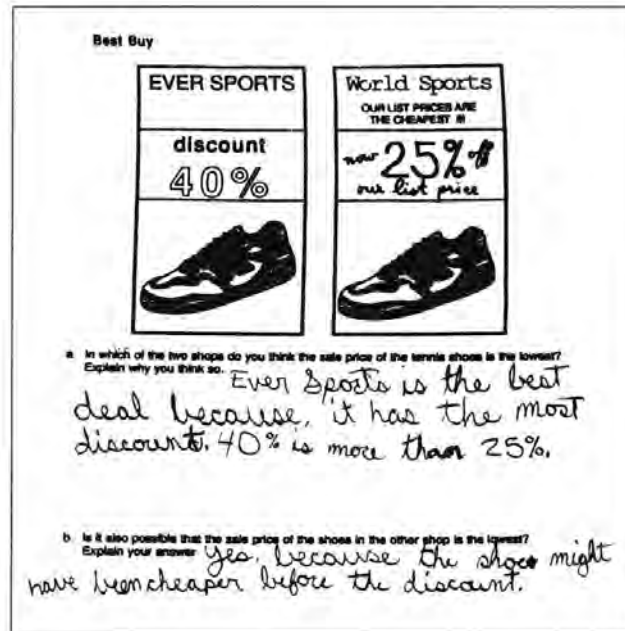 Best Buy
EVER SPORTS
discount
40%
World Sports
OUR LIST PRICES ARE
THE CHEAPEST !!!
now 25% off
our list price
a. In which of the two shops do you think the sale price of the tennis shoes is the lowest?
Explain why you think so. Ever Sports is the best
deal because, it has the most
discount. 40% is more than 25%.
b. Is it also possible that the sale price of the shoes in the other shop is the lowest?
Explain your answer Yes, because the shoes might
have been cheaper before the discount.